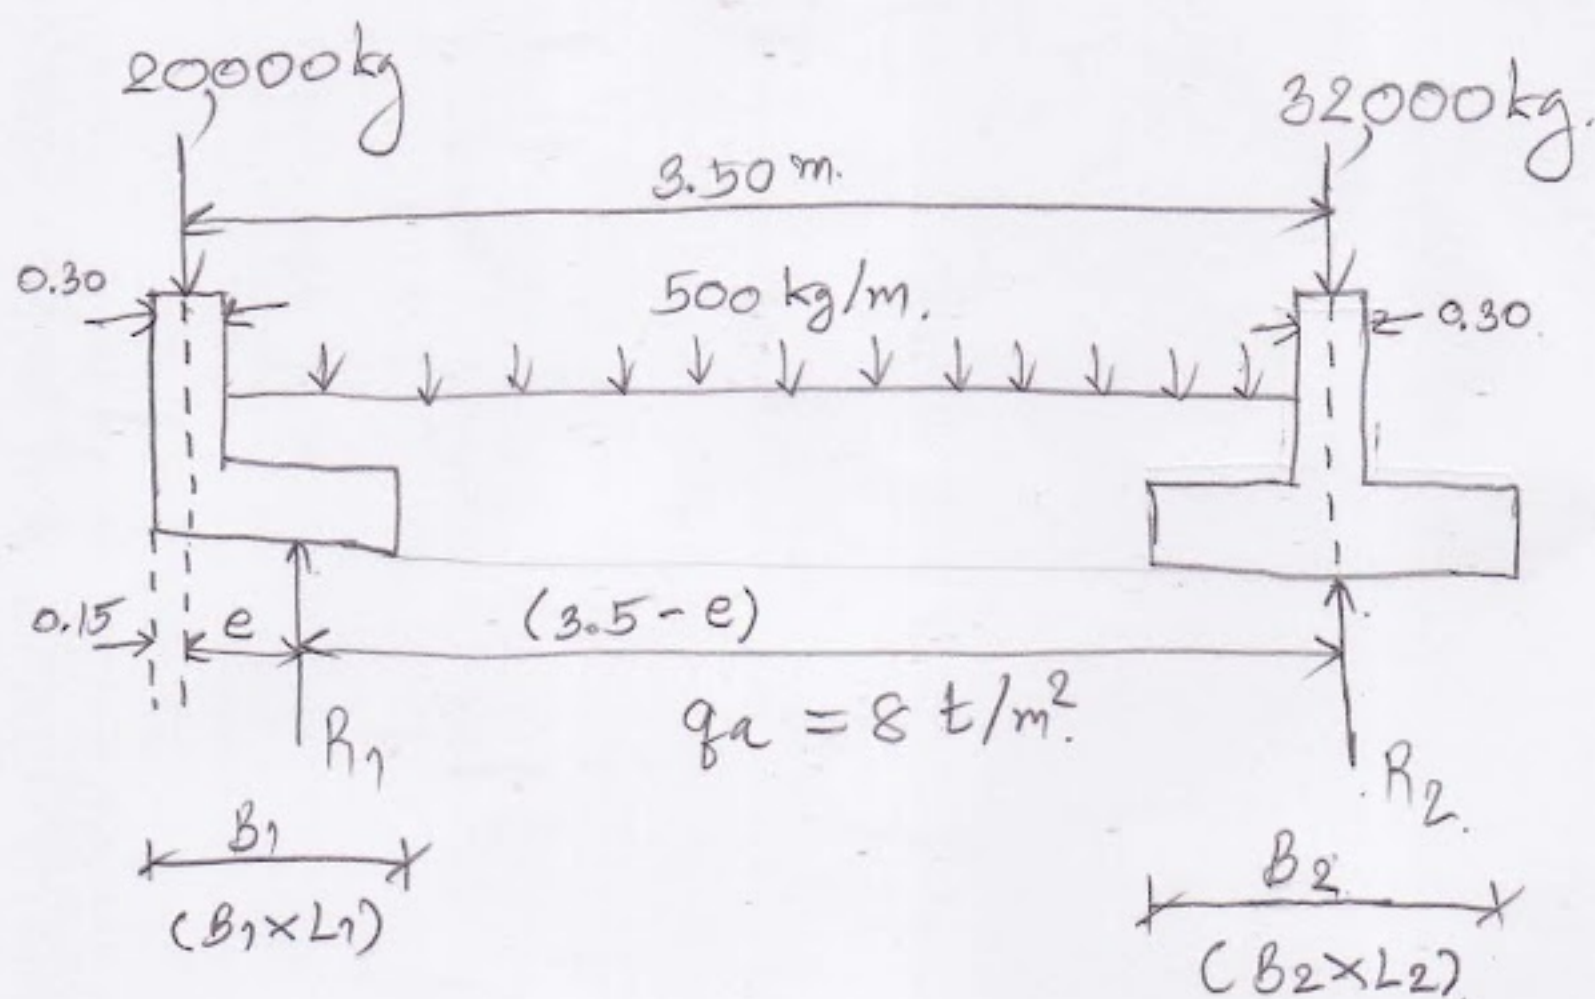 20,000 kg
32,000 kg.
3.50 m.
0.30
500 kg/m.
0.30
0.15
e
(3.5 - e)
R1
qa = 8 t/m².
R2.
B1
(B1×L1)
B2
(B2×L2)